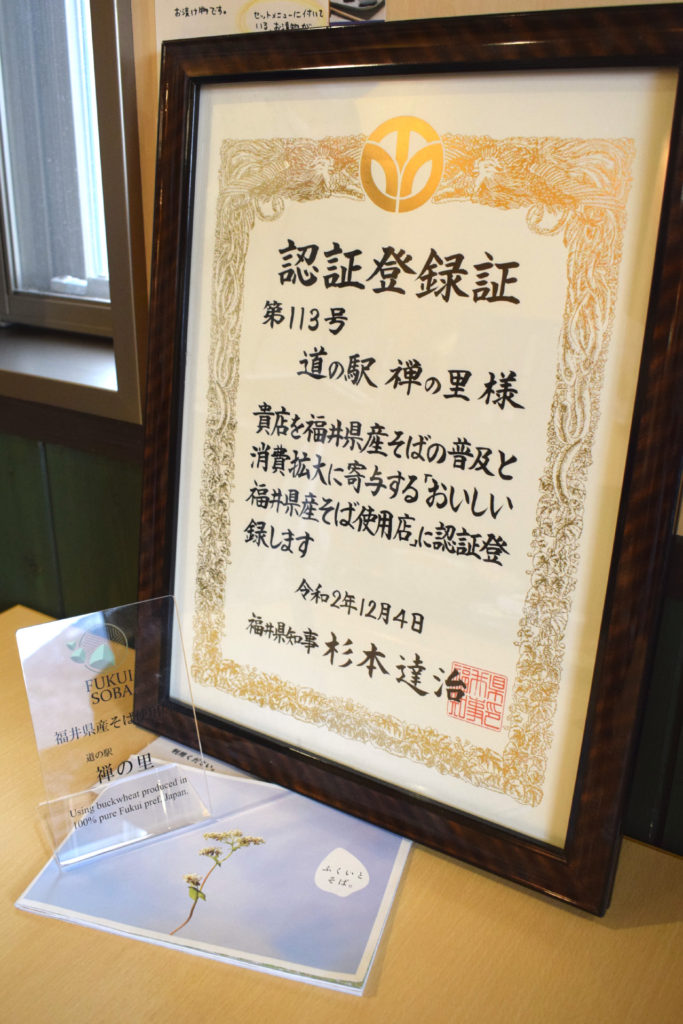 お漬け物です。
セットメニューに付いて
いる お漬物が
認証登録証
第113号
道の駅 禅の里 様
貴店を福井県産そばの普及と
消費拡大に寄与する「おいしい
福井県産そば使用店」に認証登
録します
令和2年12月4日
福井県知事 杉本達治
FUKUI
SOBA
福井県産そば
道の駅
禅の里
Using buckwheat produced in
100% pure Fukui pref. Japan.
利用ください。
ふくいと
そば。